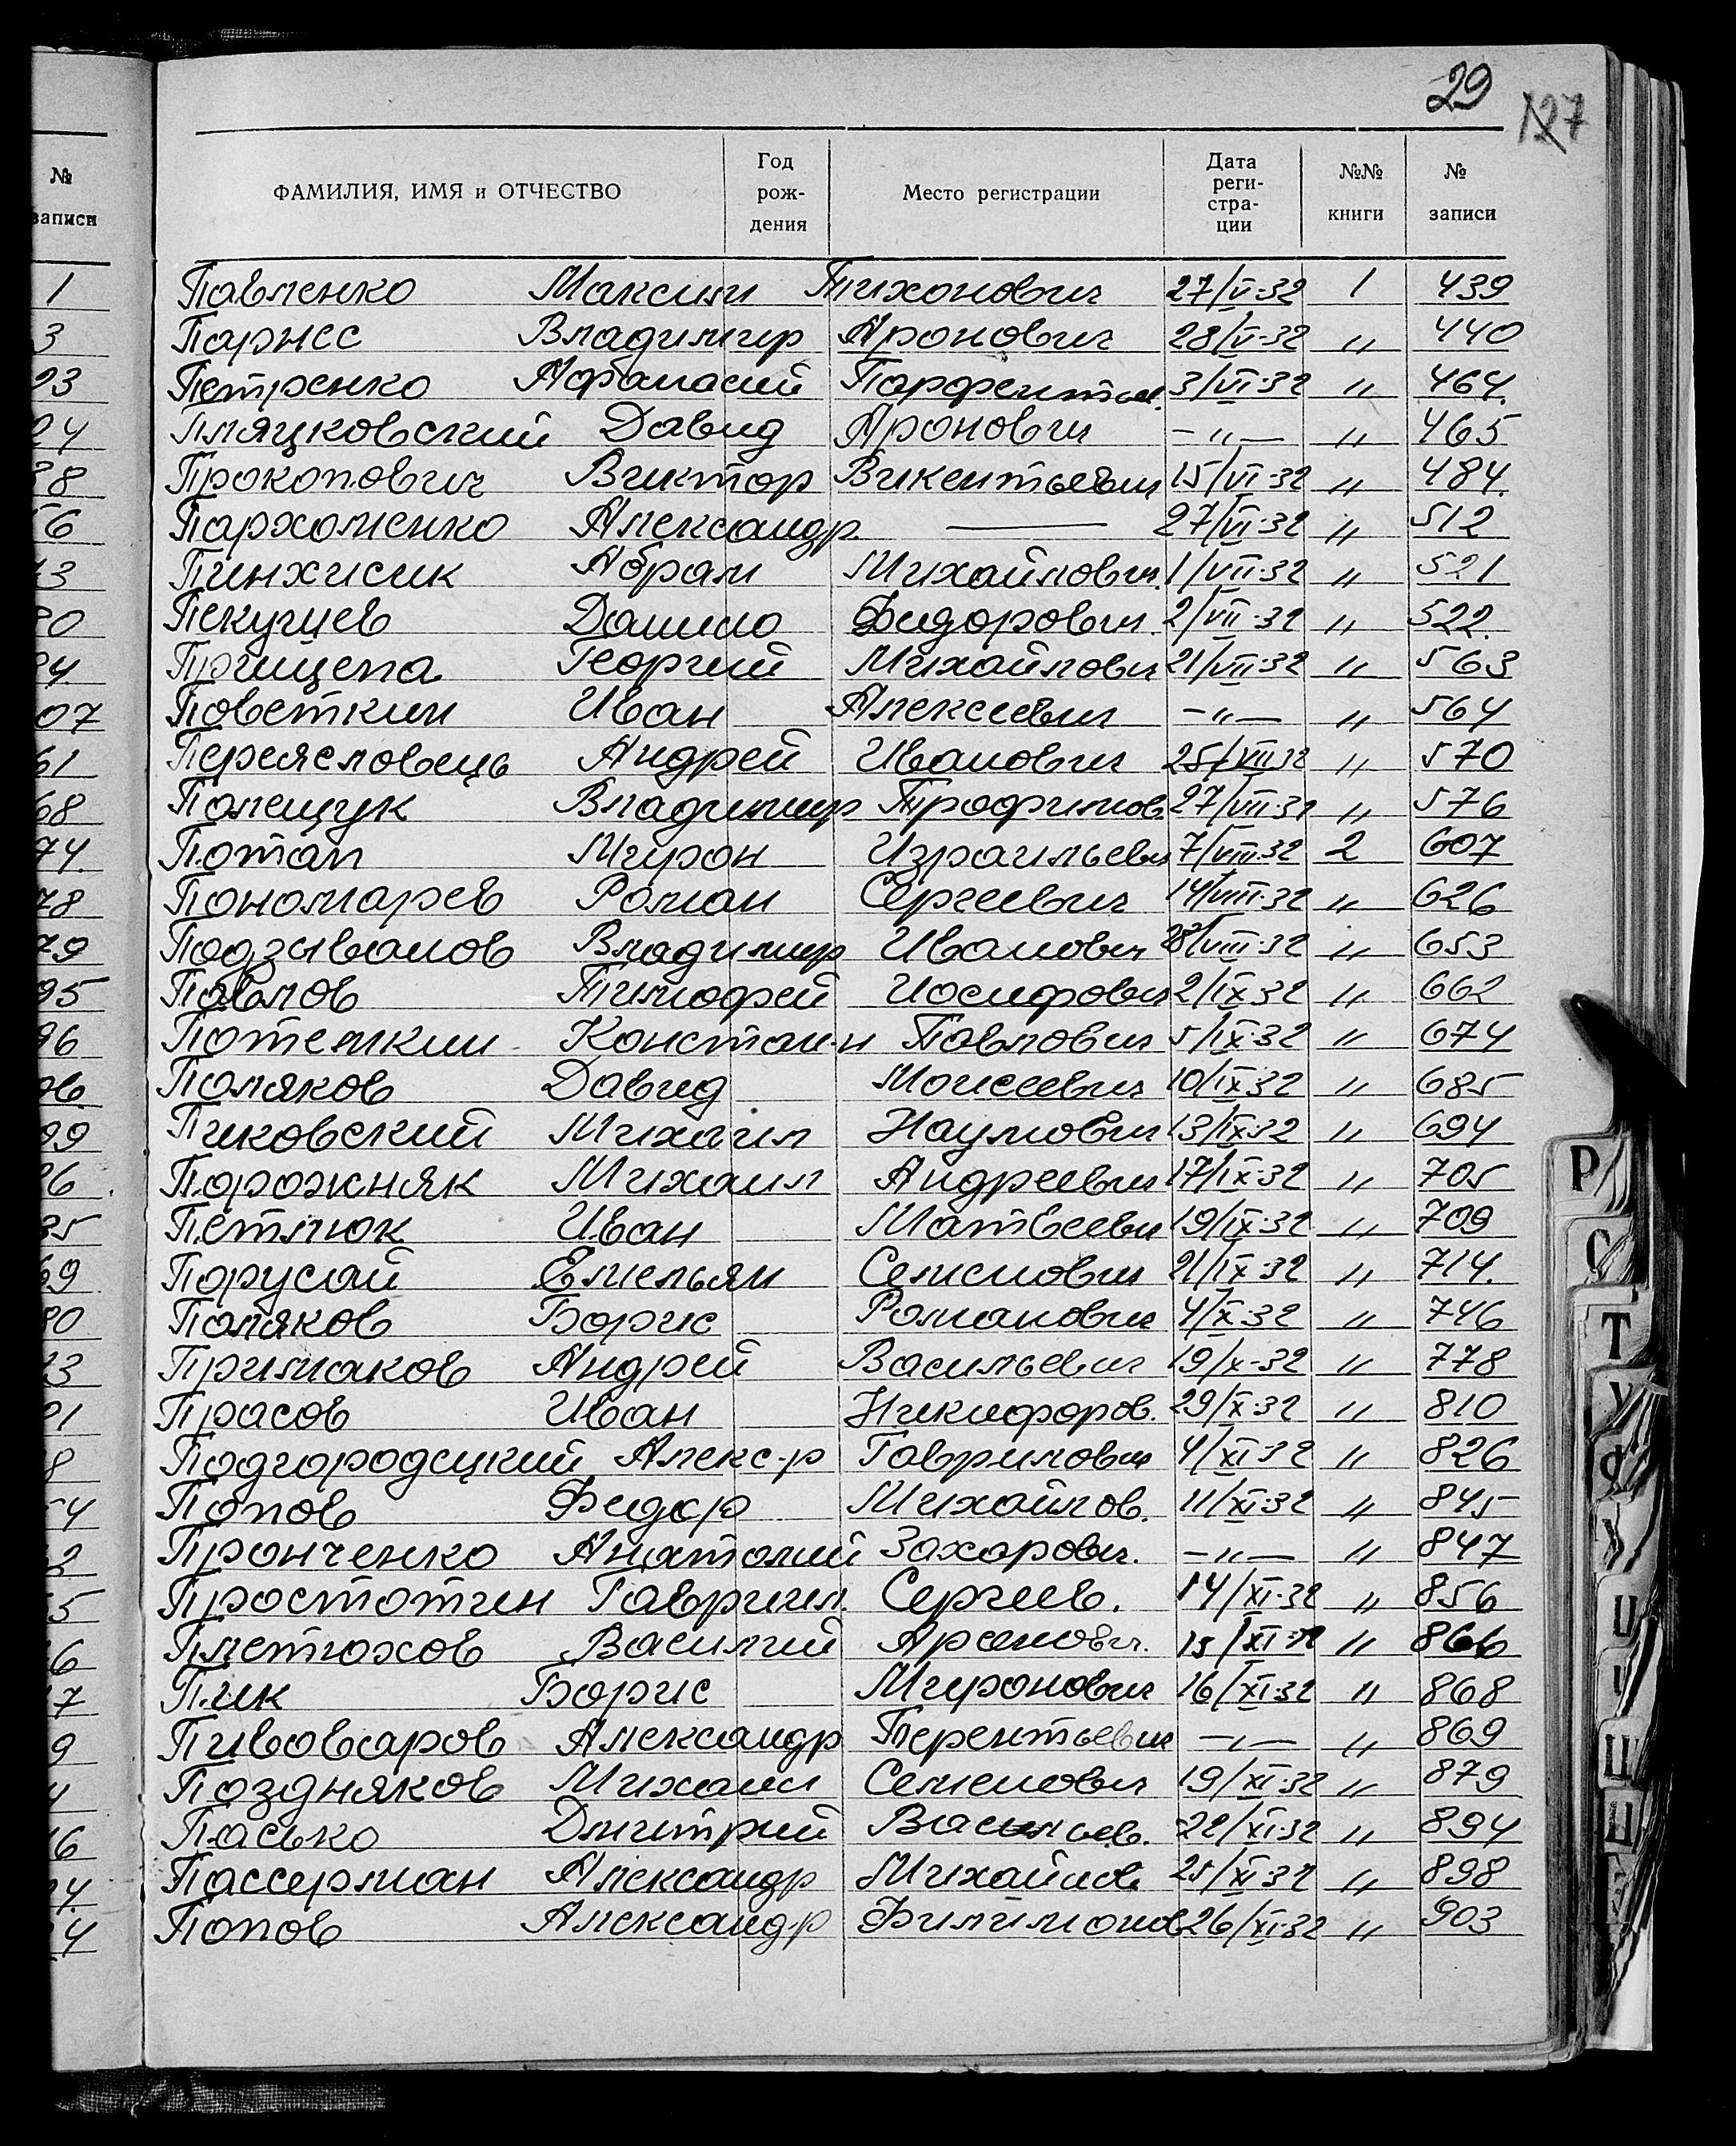 29
127
№ записи
ФАМИЛИЯ, ИМЯ и ОТЧЕСТВО Год рож- дения Место регистрации Дата реги- стра- ции №№ книги № записи
Павленко Максим Тихонович 27/V-32 1 439
Парнес Владимир Аронович 28/V-32 " 440
Петренко Афанасий Парфентьев. 3/VI-32 " 464.
Пляцковский Давид Аронович -"- " 465
Прокопович Виктор Викентьевич 15/VI-32 " 484.
Пархоменко Александр. — 27/VI-32 " 512
Пинхисик Абрам Михайлович. 1/VII-32 " 521
Пекущев Данило Фидорович. 2/VII-32 " 522.
Прищепа Георгий Михайлович 21/VII-32 " 563
Поветкин Иван Алексеевич -"- " 564
Переясловець Андрей Иванович 25/VII 32 " 570
Полещук Владимир Трофимов. 27/VII-32 " 576
Потап Мирон Израильевич 7/VIII-32 2 607
Пономарев Роман Сергеевич 14/VIII-32 " 626
Подзыванов Владимир Иванович 28/VIII-32 " 653
Павлов Тимофей Иосифович 2/IX-32 " 662
Потемкин Констан-н Павлович 5/IX-32 " 674
Поляков Давид Моисеевич 10/IX-32 " 685
Пиковский Михаил Наумович 13/IX-32 " 694
Порожняк Михаил Андреевич 17/IX-32 " 705
Петлюк Иван Матвеевич 19/IX-32 " 709
Парусай Емельян Семенович 21/IX-32 " 714.
Поляков Борис Романович 4/X-32 " 746
Примаков Андрей Васильевич 19/X-32 " 778
Прасов Иван Никифоров. 29/X-32 " 810
Подгородецкий Алекс-р Гаврилович 4/XI-32 " 826
Попов Фидор Михайлов. 11/XI-32 " 845
Пронченко Анатолий Захарович. -"- " 847
Простотин Гавриил. Сергеев. 14/XI-32 " 856
Плетюхов Василий Аронович. 15/XI-32 " 866
Пик Борис Миронович 16/XI-32 " 868
Пивоваров Александр Терентьевич -"- " 869
Поздняков Михаил Семенович 19/XI-32 " 879
Пасько Дмитрий Васильев. 22/XI-32 " 894
Пассерман Александр Михайлов 25/XI-32 " 898
Попов Александр Филимонов 26/XI-32 " 903
Р
С
Т
У
Ф